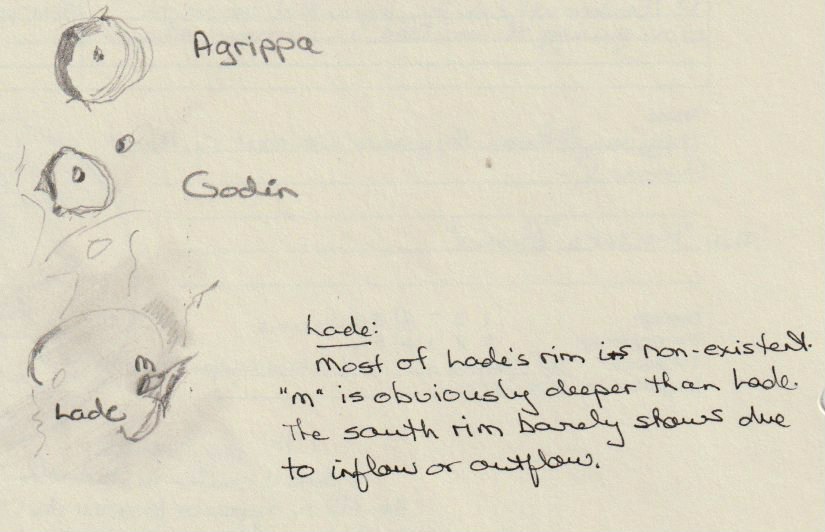 Agrippa
Godin
m
Lade
Lade:
Most of Lade's rim is non-existent.
"m" is obviously deeper than Lade.
The south rim barely shows due
to inflow or outflow.